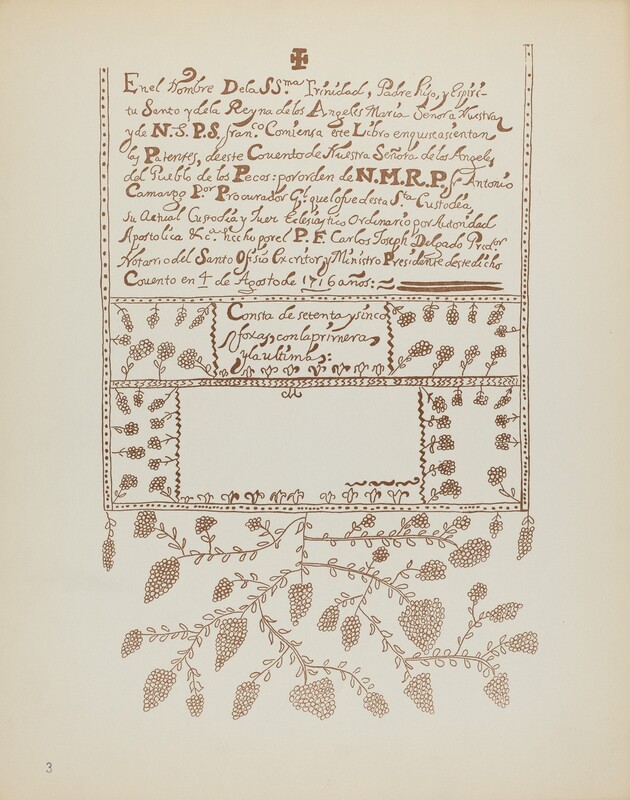 En el Nombre De la SS.ma Trinidad, Padre hijo, y Espiri-
tu Santo y de la Reyna de los Angeles Maria Señora Nuestra
y de N.S.P.S. fran.co Comiensa este Libro en quise asientan
las Patentes, de este Couento de Nuestra Señora de los Angeles
del Pueblo de los Pecos: por orden de N.M.R.P. fr Antonio
Camargo P.or Procurador G.l que lo fue desta S.ta Custodea
su Actual Custodio y Juez Eclesiastico Ordinario por Autoridad
Apostolica &c.a hecho por el P. F. Carlos Joseph Delgado
Notario del Santo Ofisio Escritor y Ministro Presidente deste dicho
Couento en 4 de Agosto de 1716 años:
Consta de setenta y sinco
foxas, con la primera,
y la ultima:
3